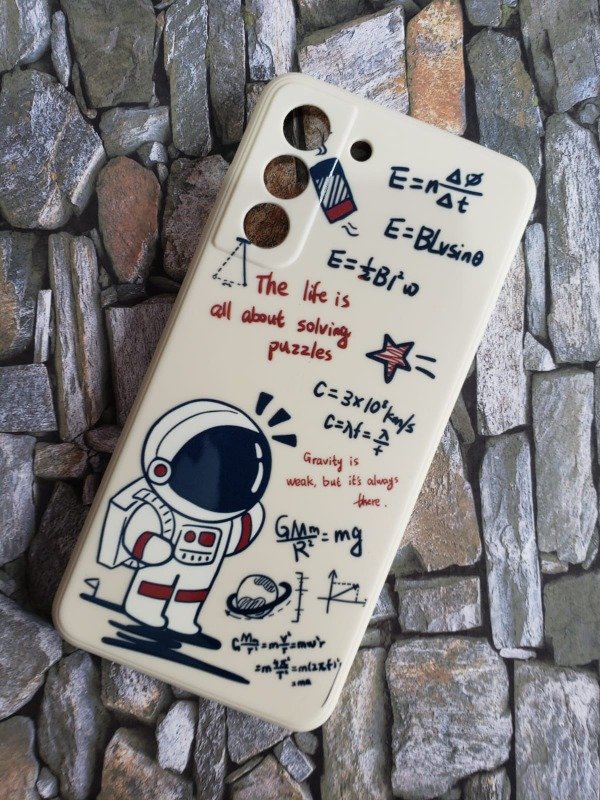 E=n Δø/Δt
E=BLvsinθ
E=½Bl²ω
The life is
all about solving
puzzles
C=3×10⁵km/s
C=λf=λ/T
Gravity is
weak, but it's always
there.
GMm/R²=mg